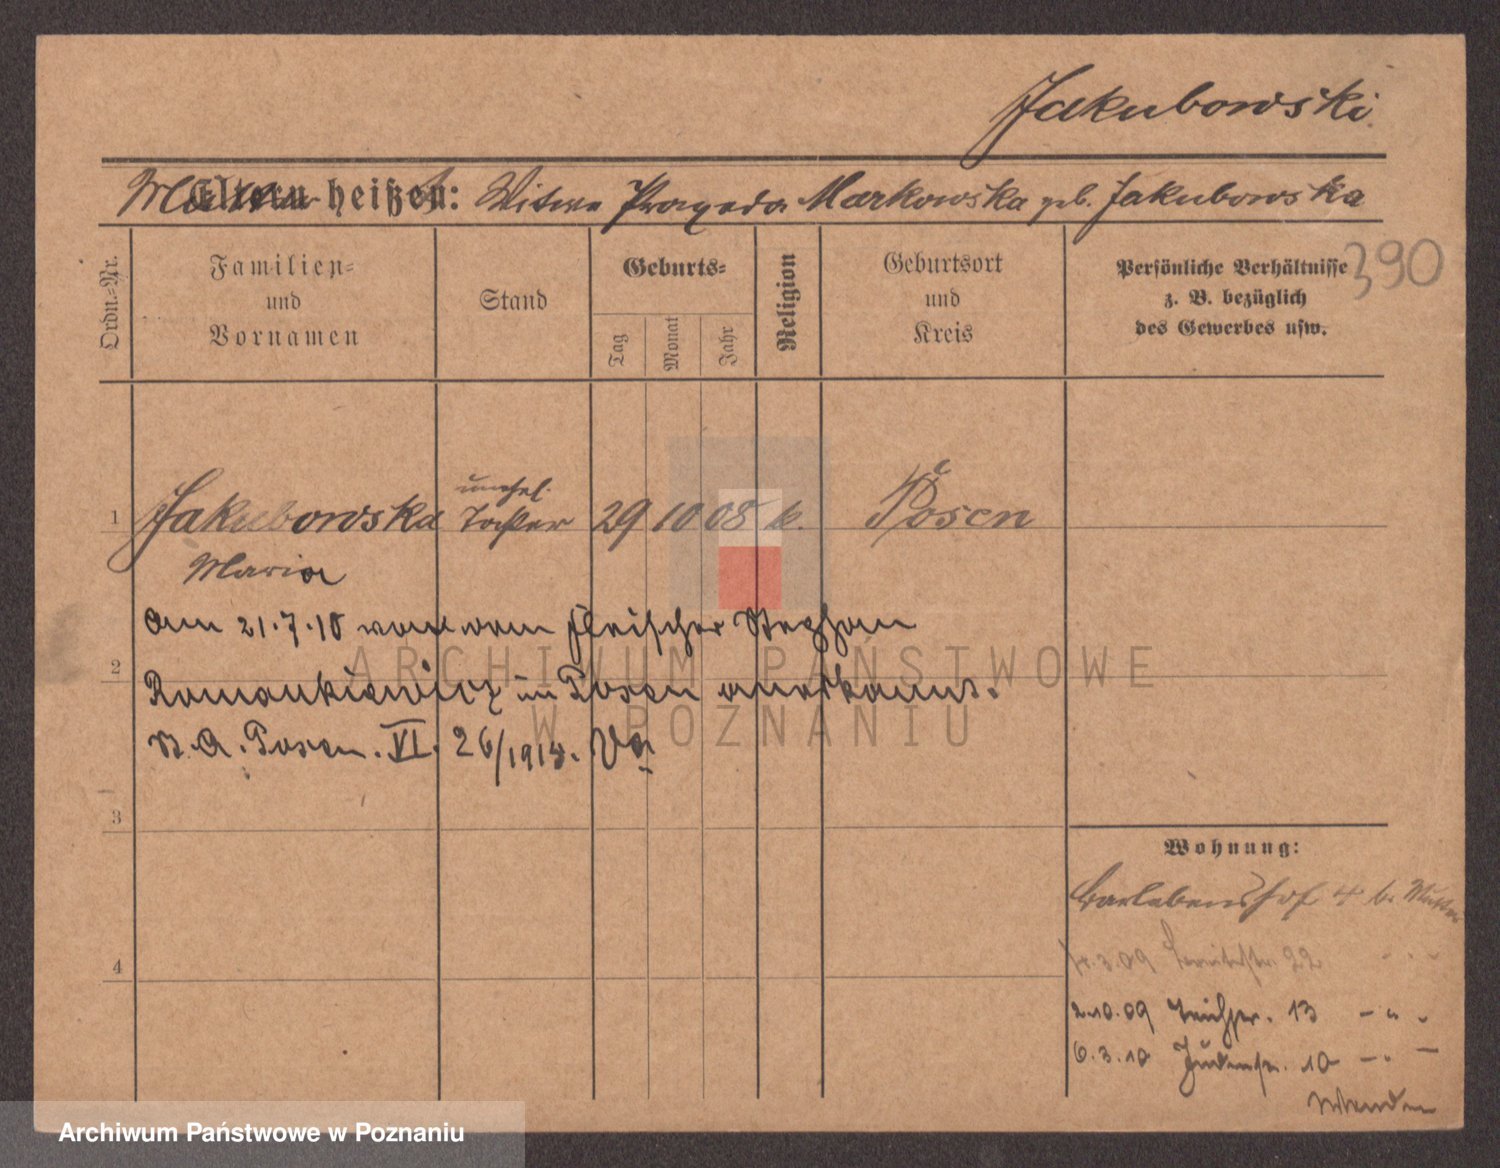 Jakubowski
Mutter Eltern heißen: Witwe Praxeda Markowska geb. Jakubowska
390
Ordn.-Nr.
Familien- und Vornamen
Stand
Geburts-
Tag
Monat
Jahr
Religion
Geburtsort und Kreis
Persönliche Verhältnisse
z. B. bezüglich
des Gewerbes usw.
unehel.
1 Jakubowska Tochter 29 10 08 k. Posen
Maria
Am 21.7.10 von dem Fleischer Stephan
2
Romankiewicz in Posen anerkannt.
St. A. Posen. VI. 26/1913.
3
Wohnung:
Barlebenshof 4 b. Mutter
4
3.09 22
2.10.09 Teichstr. 13 - " -
6.3.10 Judenstr. 10 - " -
ARCHIWUM PAŃSTWOWE
W POZNANIU
Archiwum Państwowe w Poznaniu